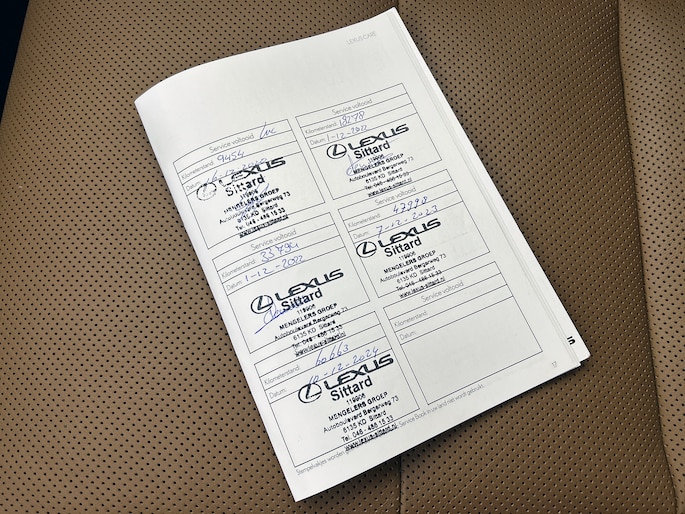 LEXUS CARE
Service voltooid
Kilometerstand: 9454
Datum:
LEXUS
Sittard
119906
MENGELERS GROEP
Autoboulevard Bergerweg 73
6135 KD Sittard
Tel. 046 - 486 16 33
www.lexus-sittard.nl
Service voltooid
Kilometerstand: 18278
Datum: 1-12-
LEXUS
Sittard
119906
MENGELERS GROEP
Autoboulevard Bergerweg 73
6135 KD Sittard
Tel. 046 - 486 16 33
www.lexus-sittard.nl
Service voltooid
Kilometerstand:
Datum: 1-12-
LEXUS
Sittard
119906
MENGELERS GROEP
Autoboulevard Bergerweg 73
6135 KD Sittard
Tel. 046 - 486 16 33
www.lexus-sittard.nl
Service voltooid
Kilometerstand: 47998
Datum: 7-12-2023
LEXUS
Sittard
119906
MENGELERS GROEP
Autoboulevard Bergerweg 73
6135 KD Sittard
Tel. 046 - 486 16 33
www.lexus-sittard.nl
Kilometerstand: 60663
Datum: 10-12-2024
LEXUS
Sittard
119906
MENGELERS GROEP
Autoboulevard Bergerweg 73
6135 KD Sittard
Tel. 046 - 486 16 33
www.lexus-sittard.nl
Service voltooid
Kilometerstand:
Datum:
Stempelvakjes worden Service Book in uw land niet wordt gebruikt.
17